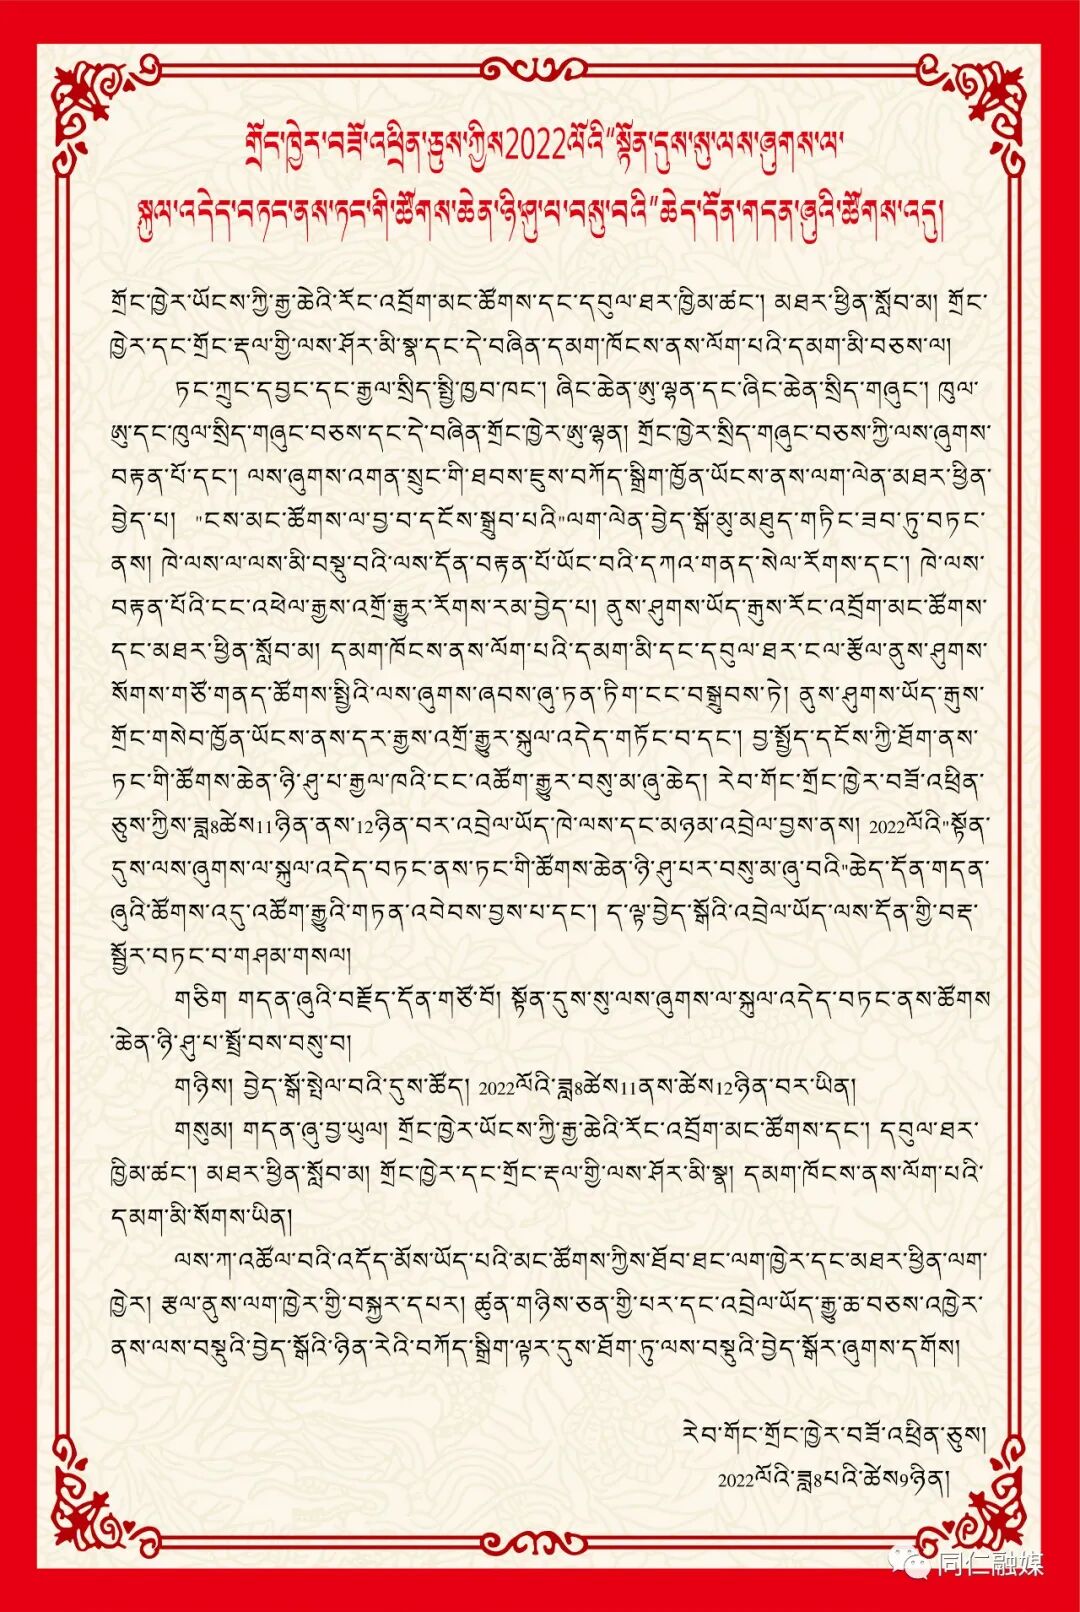 གྲོང་ཁྱེར་བཟོ་འཕྲིན་ཅུས་ཀྱིས2022ལོའི་“སྟོན་དུས་སུ་ལས་ཞུགས་ལ་
སྐུལ་འདེད་བཏང་ནས་ཏང་གི་ཚོགས་ཆེན་ཉི་ཤུ་པ་བསུ་བའི་”ཆེད་དོན་གདན་ཞུའི་ཚོགས་འདུ།
གྲོང་ཁྱེར་ཡོངས་ཀྱི་རྒྱ་ཆེའི་རོང་འབྲོག་མང་ཚོགས་དང་དབུལ་ཐར་ཁྱིམ་ཚང་། མཐར་ཕྱིན་སློབ་མ། གྲོང་
ཁྱེར་དང་གྲོང་རྡལ་གྱི་ལས་ཤོར་མི་སྣ་དང་དེ་བཞིན་དམག་ཁོངས་ནས་ལོག་པའི་དམག་མི་བཅས་ལ།
ཏང་ཀྲུང་དབྱང་དང་རྒྱལ་སྲིད་སྤྱི་ཁྱབ་ཁང་། ཞིང་ཆེན་ཨུ་ལྷན་དང་ཞིང་ཆེན་སྲིད་གཞུང་། ཁུལ་
ཨུ་དང་ཁུལ་སྲིད་གཞུང་བཅས་དང་དེ་བཞིན་གྲོང་ཁྱེར་ཨུ་ལྷན། གྲོང་ཁྱེར་སྲིད་གཞུང་བཅས་ཀྱི་ལས་ཞུགས་
བརྟན་པོ་དང་། ལས་ཞུགས་འགན་སྲུང་གི་ཐབས་ཇུས་བཀོད་སྒྲིག་ཁྱོན་ཡོངས་ནས་ལག་ལེན་མཐར་ཕྱིན་
བྱེད་པ། "ངས་མང་ཚོགས་ལ་བྱ་བ་དངོས་སྒྲུབ་པའི"ལག་ལེན་བྱེད་སྒོ་མུ་མཐུད་གཏིང་ཟབ་ཏུ་བཏང་
ནས། ཁེ་ལས་ལ་ལས་མི་བསྡུ་བའི་ལས་དོན་བརྟན་པོ་ཡོང་བའི་དཀའ་གནད་སེལ་རོགས་དང་། ཁེ་ལས་
བརྟན་པོའི་ངང་འཕེལ་རྒྱས་འགྲོ་རྒྱུར་རོགས་རམ་བྱེད་པ། ནུས་ཤུགས་ཡོད་རྒུས་རོང་འབྲོག་མང་ཚོགས་
དང་མཐར་ཕྱིན་སློབ་མ། དམག་ཁོངས་ནས་ལོག་པའི་དམག་མི་དང་དབུལ་ཐར་ངལ་རྩོལ་ནུས་ཤུགས་
སོགས་གཙོ་གནད་ཚོགས་སྤྱིའི་ལས་ཞུགས་ཞབས་ཞུ་ཏན་ཏིག་ངང་བསྒྲུབས་ཏེ། ནུས་ཤུགས་ཡོད་རྒུས་
གྲོང་གསེབ་ཁྱོན་ཡོངས་ནས་དར་རྒྱས་འགྲོ་རྒྱུར་སྐུལ་འདེད་གཏོང་བ་དང་། བྱ་སྤྱོད་དངོས་ཀྱི་ཐོག་ནས་
ཏང་གི་ཚོགས་ཆེན་ཉི་ཤུ་པ་རྒྱལ་ཁའི་ངང་འཚོག་རྒྱུར་བསུ་མ་ཞུ་ཆེད། རེབ་གོང་གྲོང་ཁྱེར་བཟོ་འཕྲིན་
ཅུས་ཀྱིས་ཟླ8ཚེས11ཉིན་ནས་12ཉིན་བར་འབྲེལ་ཡོད་ཁེ་ལས་དང་མཉམ་འབྲེལ་བྱས་ནས། 2022ལོའི"སྟོན་
དུས་ལས་ཞུགས་ལ་སྐུལ་འདེད་བཏང་ནས་ཏང་གི་ཚོགས་ཆེན་ཉི་ཤུ་པར་བསུ་མ་ཞུ་བའི"ཆེད་དོན་གདན་
ཞུའི་ཚོགས་འདུ་འཚོག་རྒྱུའི་གཏན་འབེབས་བྱས་པ་དང་། ད་ལྟ་བྱེད་སྒོའི་འབྲེལ་ཡོད་ལས་དོན་གྱི་བརྡ་
སྦྱོར་བཏང་བ་གཤམ་གསལ།
གཅིག གདན་ཞུའི་བརྗོད་དོན་གཙོ་བོ། སྟོན་དུས་སུ་ལས་ཞུགས་ལ་སྐུལ་འདེད་བཏང་ནས་ཚོགས
་ཆེན་ཉི་ཤུ་པ་སྤྲོ་བས་བསུ་བ།
གཉིས། བྱེད་སྒོ་སྤེལ་བའི་དུས་ཚོད། 2022ལོའི་ཟླ8ཚེས11ནས་ཚེས12ཉིན་བར་ཡིན།
གསུམ། གདན་ཞུ་བྱ་ཡུལ། གྲོང་ཁྱེར་ཡོངས་ཀྱི་རྒྱ་ཆེའི་རོང་འབྲོག་མང་ཚོགས་དང་། དབུལ་ཐར་
ཁྱིམ་ཚང་། མཐར་ཕྱིན་སློབ་མ། གྲོང་ཁྱེར་དང་གྲོང་རྡལ་གྱི་ལས་ཤོར་མི་སྣ། དམག་ཁོངས་ནས་ལོག་པའི་
དམག་མི་སོགས་ཡིན།
ལས་ཀ་འཚོལ་བའི་འདོད་མོས་ཡོད་པའི་མང་ཚོགས་ཀྱིས་ཐོབ་ཐང་ལག་ཁྱེར་དང་མཐར་ཕྱིན་ལག་
ཁྱེར། རྩལ་ནུས་ལག་ཁྱེར་གྱི་བསྐྱར་དཔར། ཚུན་གཉིས་ཅན་གྱི་པར་དང་འབྲེལ་ཡོད་རྒྱུ་ཆ་བཅས་འཁྱེར་
ནས་ལས་བསྡུའི་བྱེད་སྒོའི་ཉིན་རེའི་བཀོད་སྒྲིག་ལྟར་དུས་ཐོག་ཏུ་ལས་བསྡུའི་བྱེད་སྒོར་ཞུགས་དགོས།
རེབ་གོང་གྲོང་ཁྱེར་བཟོ་འཕྲིན་ཅུས།
2022ལོའི་ཟླ8པའི་ཚེས9ཉིན།
同仁融媒